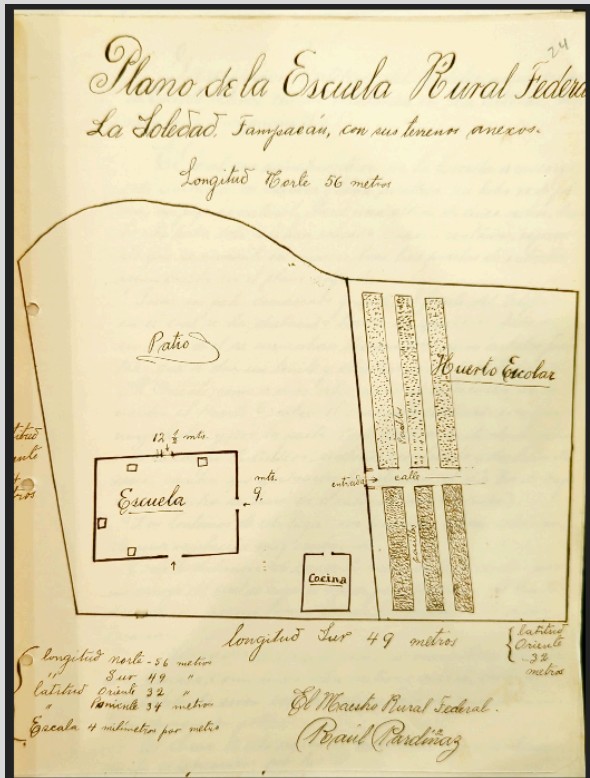 24
Plano de la Escuela Rural Federa
La Soledad, Tampacán, con sus terrenos anexos.
Longitud Norte 56 metros
Patio
Huerto Escolar
12 ½ mts.
Escuela
mts.
9.
entrada
calle
Cocina
longitud Sur 49 metros
latitud
Oriente
32
metros
longitud norte - 56 metros
" Sur 49 "
latitud Oriente 32 "
" Poniente 34 metros
Escala 4 milímetros por metro
El Maestro Rural Federal.
Raúl Pardiñaz